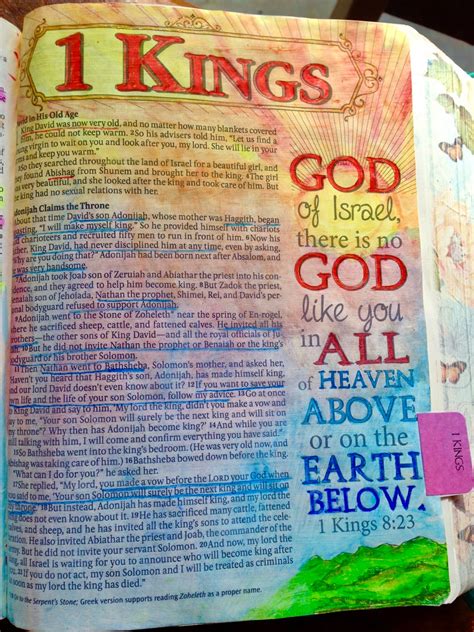 1 KINGS
in His Old Age
King David was now very old, and no matter how many blankets covered
him, he could not keep warm. 2So his advisers told him, "Let us find a
virgin to wait on you and look after you, my lord. She will lie in your
and keep you warm."
3So they searched throughout the land of Israel for a beautiful girl, and
found Abishag from Shunem and brought her to the king. 4The girl
was very beautiful, and she looked after the king and took care of him. But
the king had no sexual relations with her.
Adonijah Claims the Throne
about that time David's son Adonijah, whose mother was Haggith, began
"I will make myself king." So he provided himself with chariots
charioteers and recruited fifty men to run in front of him. 6Now his
father, King David, had never disciplined him at any time, even by asking,
"Why are you doing that?" Adonijah had been born next after Absalom, and
was very handsome.
7Adonijah took Joab son of Zeruiah and Abiathar the priest into his con-
dence, and they agreed to help him become king. 8But Zadok the priest,
Benaiah son of Jehoiada, Nathan the prophet, Shimei, Rei, and David's per-
sonal bodyguard refused to support Adonijah.
9Adonijah went to the Stone of Zoheleth* near the spring of En-rogel,
where he sacrificed sheep, cattle, and fattened calves. He invited all his
brothers—the other sons of King David—and all the royal officials of
10But he did not invite Nathan the prophet or Benaiah or the king's
bodyguard or his brother Solomon.
11Then Nathan went to Bathsheba, Solomon's mother, and asked her,
"Haven't you heard that Haggith's son, Adonijah, has made himself king,
and our lord David doesn't even know about it? 12If you want to save your
own life and the life of your son Solomon, follow my advice. 13Go at once
to King David and say to him, 'My lord the king, didn't you make a vow and
say to me, "Your son Solomon will surely be the next king and will sit on
my throne"? Why then has Adonijah become king?' 14And while you are
still talking with him, I will come and confirm everything you have said."
15So Bathsheba went into the king's bedroom. (He was very old now, and
Abishag was taking care of him.) 16Bathsheba bowed down before the king.
"What can I do for you?" he asked her.
17She replied, "My lord, you made a vow before the LORD your God when
you said to me, 'Your son Solomon will surely be the next king and will sit on
my throne.' 18But instead, Adonijah has made himself king, and my lord the
king does not even know about it. 19He has sacrificed many cattle, fattened
calves, and sheep, and he has invited all the king's sons to attend the
celebration. He also invited Abiathar the priest and Joab, the commander of the
army. But he did not invite your servant Solomon. 20And now, my lord the
king, all Israel is waiting for you to announce who will become king after
you. 21If you do not act, my son Solomon and I will be treated as criminals
as soon as my lord the king has died."
Or to the Serpent's Stone; Greek version supports reading Zoheleth as a proper name.
GOD
of Israel,
there is no
GOD
like you
in ALL
of HEAVEN
ABOVE
or on the
EARTH
BELOW.
1 Kings 8:23
1 KINGS